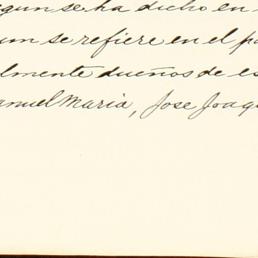 egun se ha dicho en
un se refiere en el pa
lmente dueños de es
anuel Maria, Jose Joaq